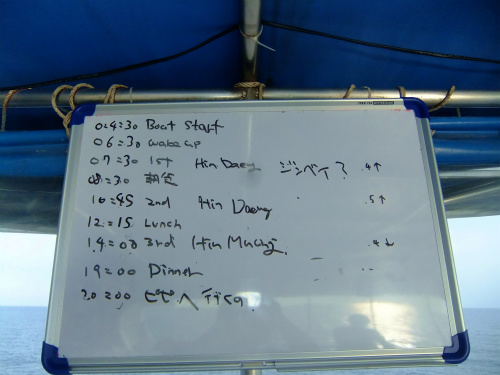 04:30 Boat Start
06:30 wake up
07:30 1st Hin Daeng ジンベイ? .4↑
08:30 朝食
10:45 2nd Hin Daeng .5↑
12:15 Lunch
14:00 3rd Hin Muang .4↓
19:00 Dinner
20:00 ピピへ